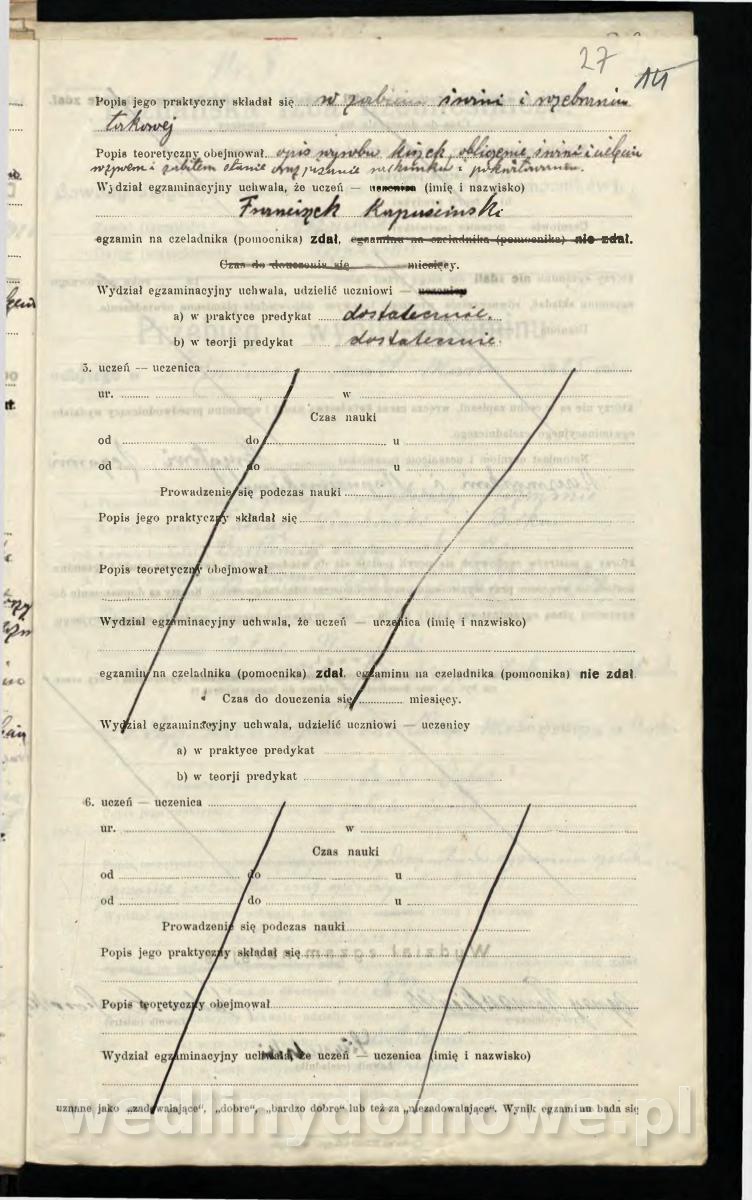 27 14
Popis jego praktyczny składał się w zabiciu świni i rozebraniu
takowej
Popis teoretyczny obejmował opis wyrobu kiszek, obliczenie świni i cielęcia
w żywem i zabitem stanie oraz pisanie rachunków i pokwitowania.
Wydział egzaminacyjny uchwala, że uczeń — uczenica (imię i nazwisko)
Franciszek Kapuściński
egzamin na czeladnika (pomocnika) zdał, egzaminu na czeladnika (pomocnika) nie zdał.
Czas do douczenia się miesięcy.
Wydział egzaminacyjny uchwala, udzielić uczniowi — uczenicy
a) w praktyce predykat dostatecznie.
b) w teorji predykat dostatecznie.
5. uczeń — uczenica
ur. w
Czas nauki
od do u
od do u
Prowadzenie się podczas nauki
Popis jego praktyczny składał się
Popis teoretyczny obejmował
Wydział egzaminacyjny uchwala, że uczeń — uczenica (imię i nazwisko)
egzamin na czeladnika (pomocnika) zdał, egzaminu na czeladnika (pomocnika) nie zdał
Czas do douczenia się miesięcy.
Wydział egzaminacyjny uchwala, udzielić uczniowi — uczenicy
a) w praktyce predykat
b) w teorji predykat
6. uczeń — uczenica
ur. w
Czas nauki
od do u
od do u
Prowadzenie się podczas nauki
Popis jego praktyczny składał się
Popis teoretyczny obejmował
Wydział egzaminacyjny uchwala, że uczeń — uczenica (imię i nazwisko)
uznane jako „zadawalające“, „dobre“, „bardzo dobre“ lub też za „niezadowalające“. Wynik egzaminu bada się
wedlinydomowe.pl